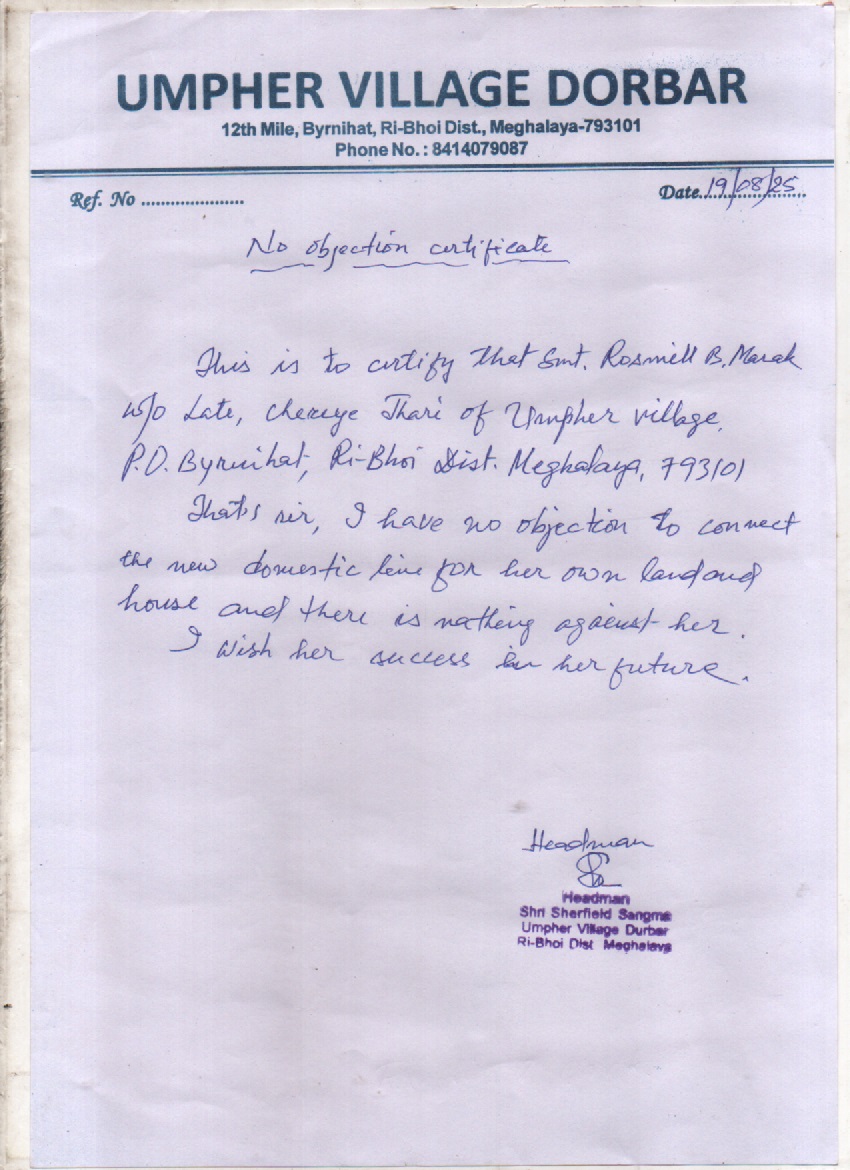 UMPHER VILLAGE DORBAR
12th Mile, Byrnihat, Ri-Bhoi Dist., Meghalaya-793101
Phone No. : 8414079087
Ref. No ..................... Date 19/08/25
No objection certificate
This is to certify that Smt. Rosmill B. Marak
w/o Late, Thari of Umpher village,
P.O. Byrnihat, Ri-Bhoi Dist. Meghalaya, 793101
That's sir, I have no objection to connect
the new domestic line for her own land and
house and there is nothing against her.
I wish her success in her future.
Headman
Headman
Shri Sherfield Sangma
Umpher Village Durbar
Ri-Bhoi Dist Meghalaya